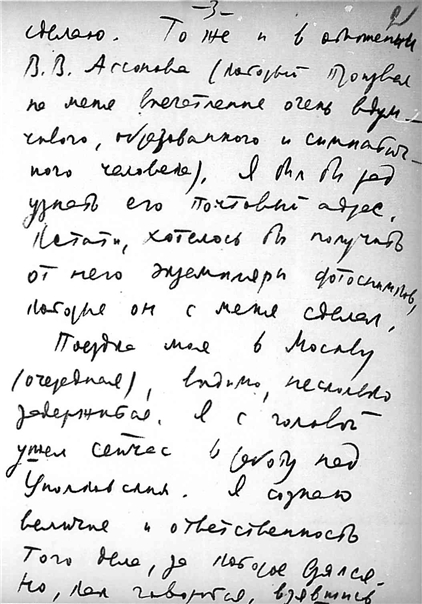 -3-
сделаю. То же и в отношении
В. В. (который произвел
на меня впечатление очень вдум-
чивого, образованного и симпатич-
ного человека). Я был бы рад
узнать его почтовый адрес.
Кстати, хотелось бы получить
от него экземпляры фотоснимков,
которые он с меня сделал.
Поездка моя в Москву
(очередная), видимо, несколько
задержится. Я с головой
ушел сейчас в работу над
Я сознаю
величие и ответственность
того дела, за которое взялся.
Но, как говорится, взявшись